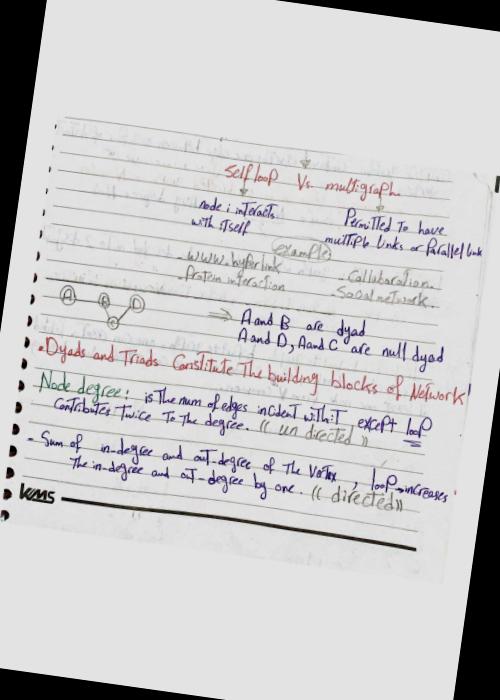 Self loop Vs. multigraph
node i interacts
with itself
Permitted To have
multiple links or Parallel link
Example
- WWW. hyperlink
- Protein interaction
- Collaboration.
- Social network.
A B D
C
⇒ A and B are dyad
A and D, A and C are null dyad
• Dyads and Triads Constitute The building blocks of Network!
Node degree: is The num of edges incident with it except loop
Contributes Twice To The degree. (( un directed ))
- Sum of in-degree and out-degree of The Vertex, loop → increases
The in-degree and out-degree by one. (( directed ))
KMS